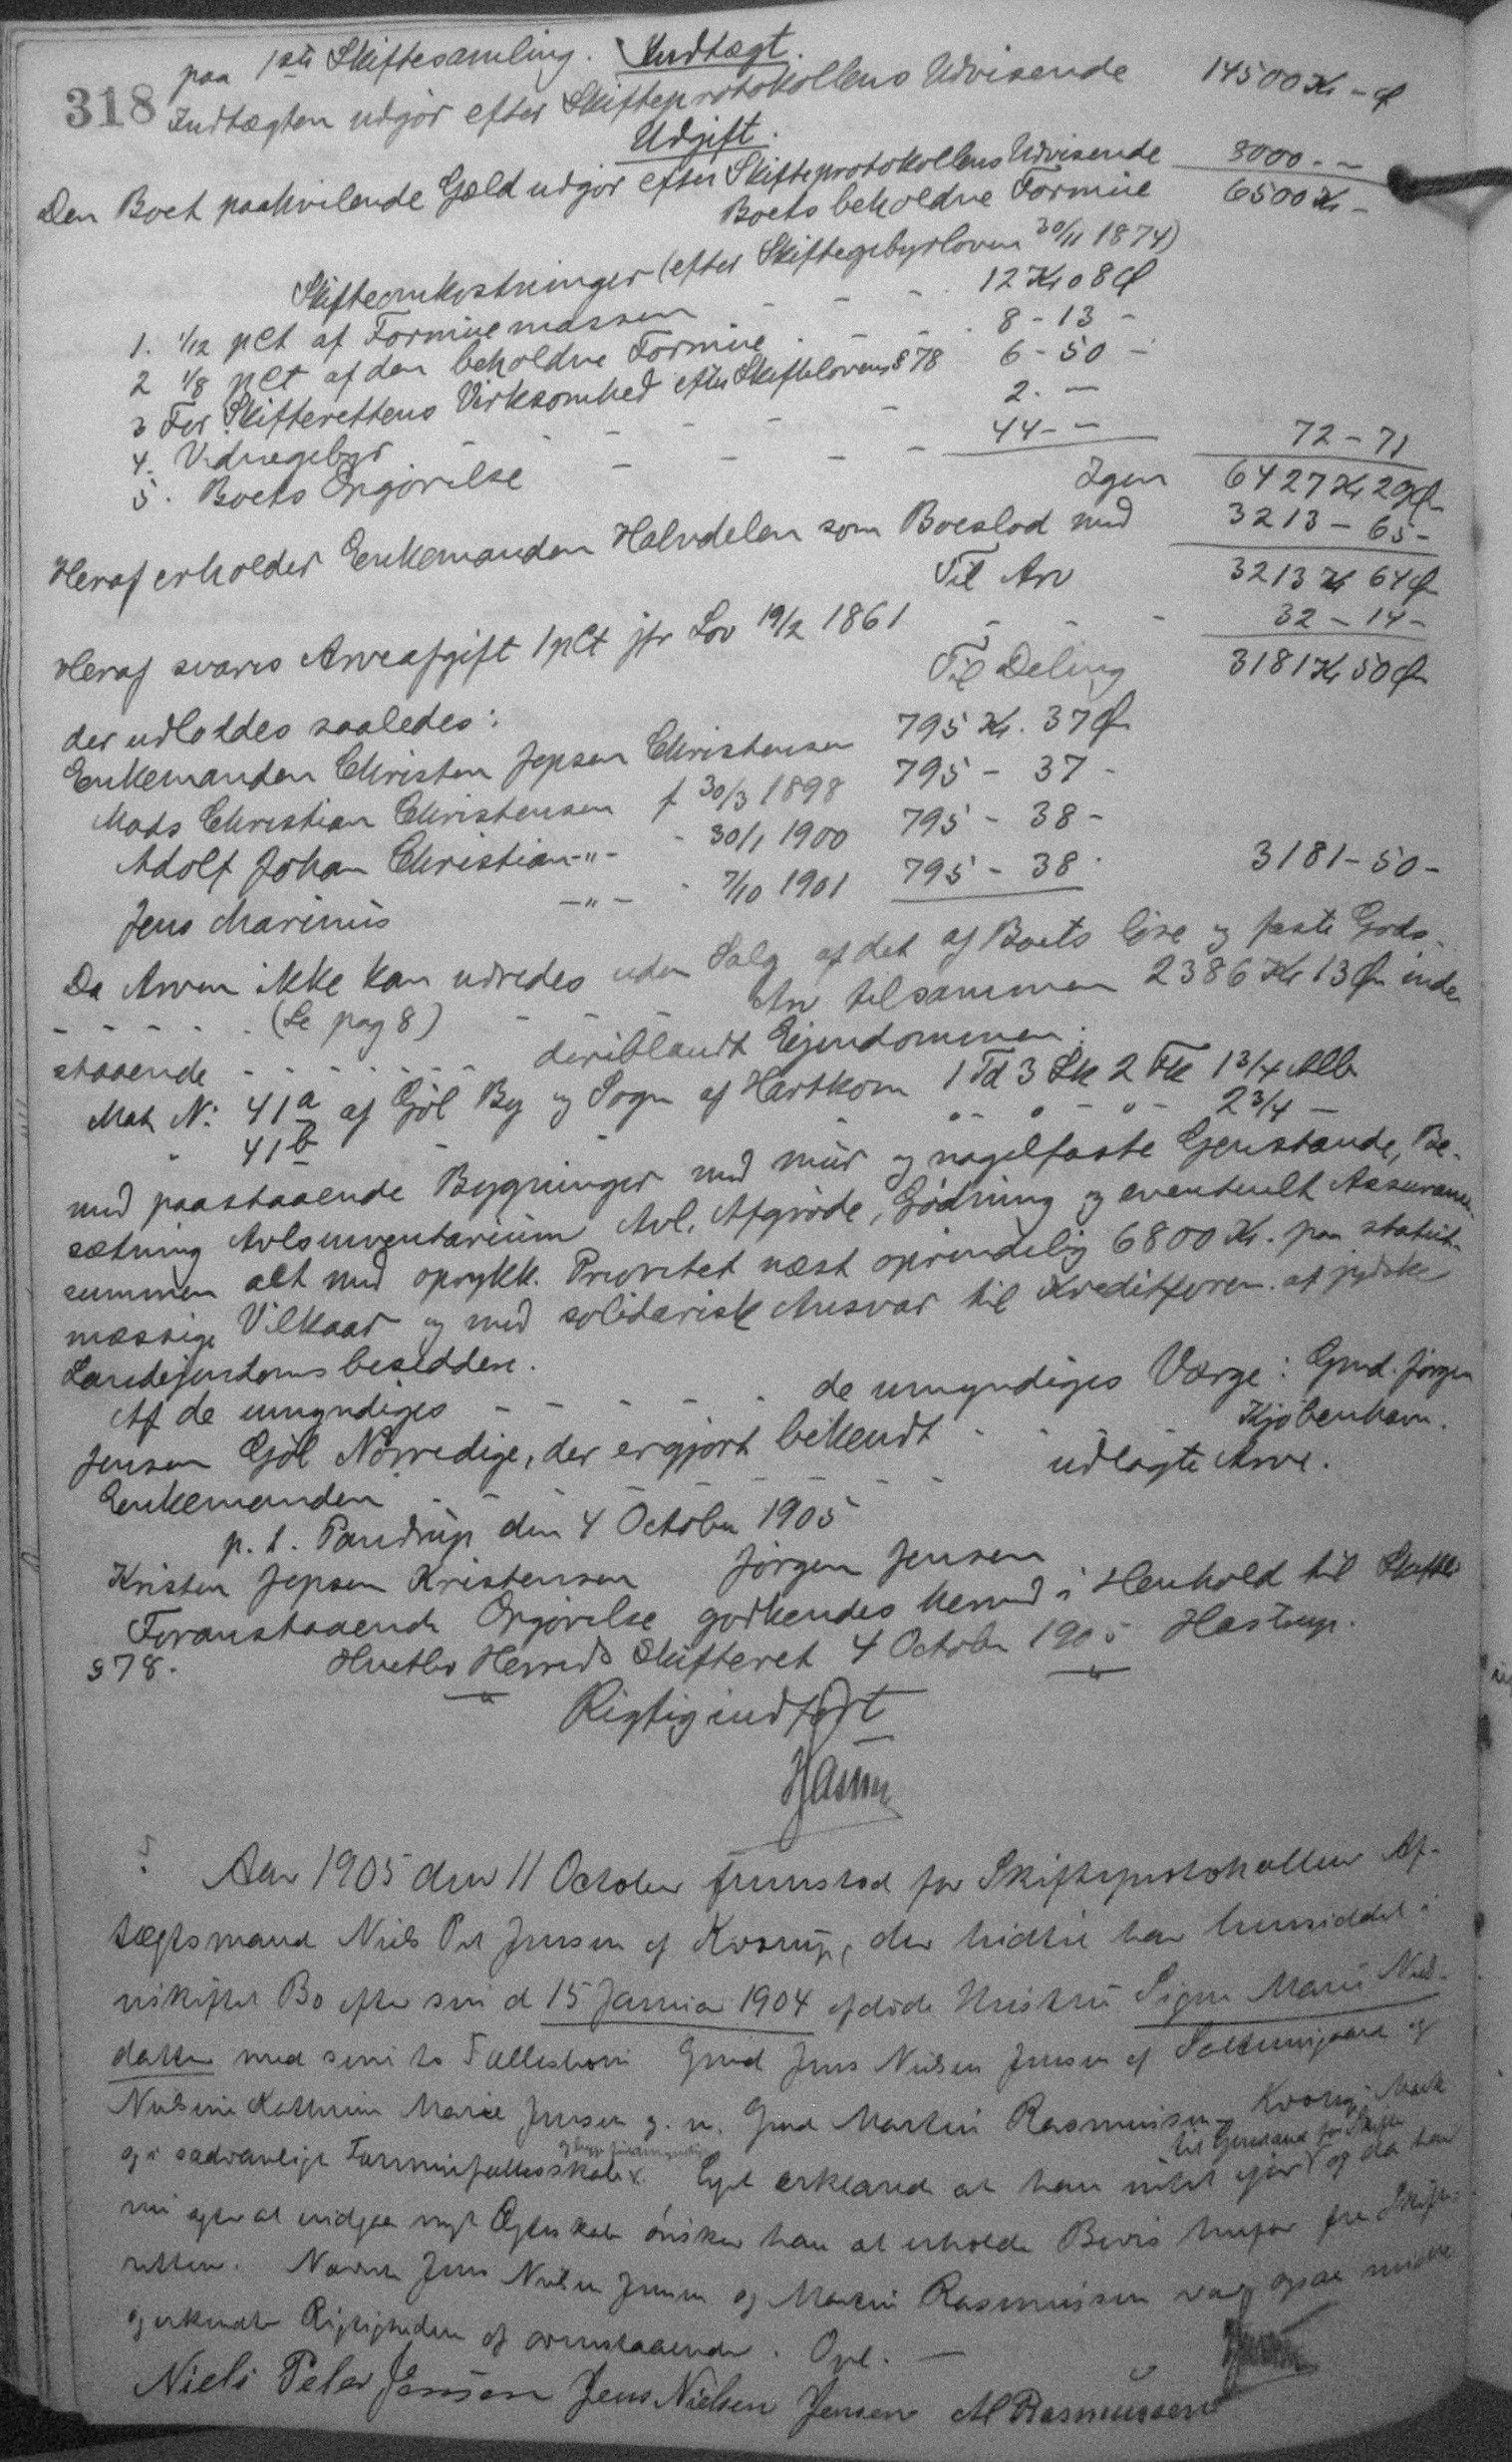 318
paa 1ste Skiftesamling. Indtægt.
Indtægten udgjör efter Skifteprotokollens Udvisende 14500 Kr - Ø
Udgift.
Den Boet paahvilende Gæld udgjör efter Skifteprotokollens Udvisende 8000 - -
Boets beholdne Formue 6500 Kr -
Skifteomkostninger (efter Skiftegebyrloven 30/11 1874)
1. 1/12 pCt af Formuemassen - - - 12 Kr 08 Ø
2 1/8 pCt af den beholdne Formue - - - 8 - 13 -
3 For Skifterettens Virksomhed efter Skiftelovens § 78 6 - 50 -
4. Vidnegebyr - - - - - 2. -
5. Boets Opgjörelse - - - - 44 - - 72 - 71
Igen 6427 Kr 29 Ø
Heraf erholder Enkemanden Halvdelen som Boeslod med 3213 - 65 -
Til Arv 3213 Kr 64 Ø
Heraf svares Arveafgift 1 pCt jfr Lov 19/2 1861 - - - 32 - 14 -
Til Deling 3181 Kr 50 Ø
der udloddes saaledes:
Enkemanden Christen Jepsen Christensen 795 Kr. 37 Ø
Mads Christian Christensen f 30/3 1898 795 - 37 -
Adolf Johan Christian -"- - 30/1 1900 795 - 38 -
Jens Marinus -"- - 7/10 1901 795 - 38 - 3181 - 50 -
Da Arven ikke kan udredes uden Salg af det af Boets löse og faste Gods
- - - - - (Se pag 8) - - - Arv tilsammen 2386 Kr 13 Ø inde
staaende - - - - - - - deriblandt Ejendommen:
Mat N: 41a af Gjöl By og Sogn af Hartkorn 1 Td 3 Sk 2 Fk 1 3/4 Alb
" 41b - - - " - " - " - 2 3/4 -
med paastaaende Bygninger med mur og nagelfaste Genstande, Be-
sætning Avlsinventarium Avl. Afgröde, Gödning og eventuelt Assurance
summen alt med oprykk. Prioritet næst oprindelig 6800 Kr. paa statut
mæssige Vilkaar og med solidarisk Ansvar til Kreditforen. af jydske
Landejendomsbesiddere.
Af de umyndiges - - - - - de umyndiges Værge: Gmd. Jörgen
Jensen Gjöl Nörredige, der er gjort bekendt - - Kjöbenhavn.
Enkemanden - - - - - - udlagte Arve.
p. t. Pandrup den 4 October 1905
Kristen Jepsen Kristensen Jörgen Jensen
Foranstaaende Opgjörelse godkendes herved i Henhold til Skiftel
§ 78. Hvetbo Herreds Skifteret 4 October 1905 Hastrup.
Rigtig indfört
Aar 1905 den 11 October fremstod for Skifteprotokollen Af-
tægtsmand Niels Pet Jensen af Kvorup, der hidtil har hensiddet i
uskiftet Bo efter sin d 15 Januar 1904 afdöde Hustru Signe Marie Niels-
datter med sine to Fællesbörn Gmd Jens Nielsen Jensen af Saltumgaard og
Nielsine Kathrine Marie Jensen g. m. Gmd Martin Rasmussen Kvorup Mark
og i sædvanligt Formuefællesskab. erklærede at han intet ejer til Genstand for Skifte og da han
nu agter at indgaa nyt Ægteskab önsker han at erholde Bevis herfor fra Skifte-
retten. Nævnte Jens Nielsen Jensen og Martin Rasmussen var ogsaa mödte
og erkendte Rigtigheden af ovenstaaende. Opl. -
Niels Peter Jensen Jens Nielsen Jensen M Rasmussen